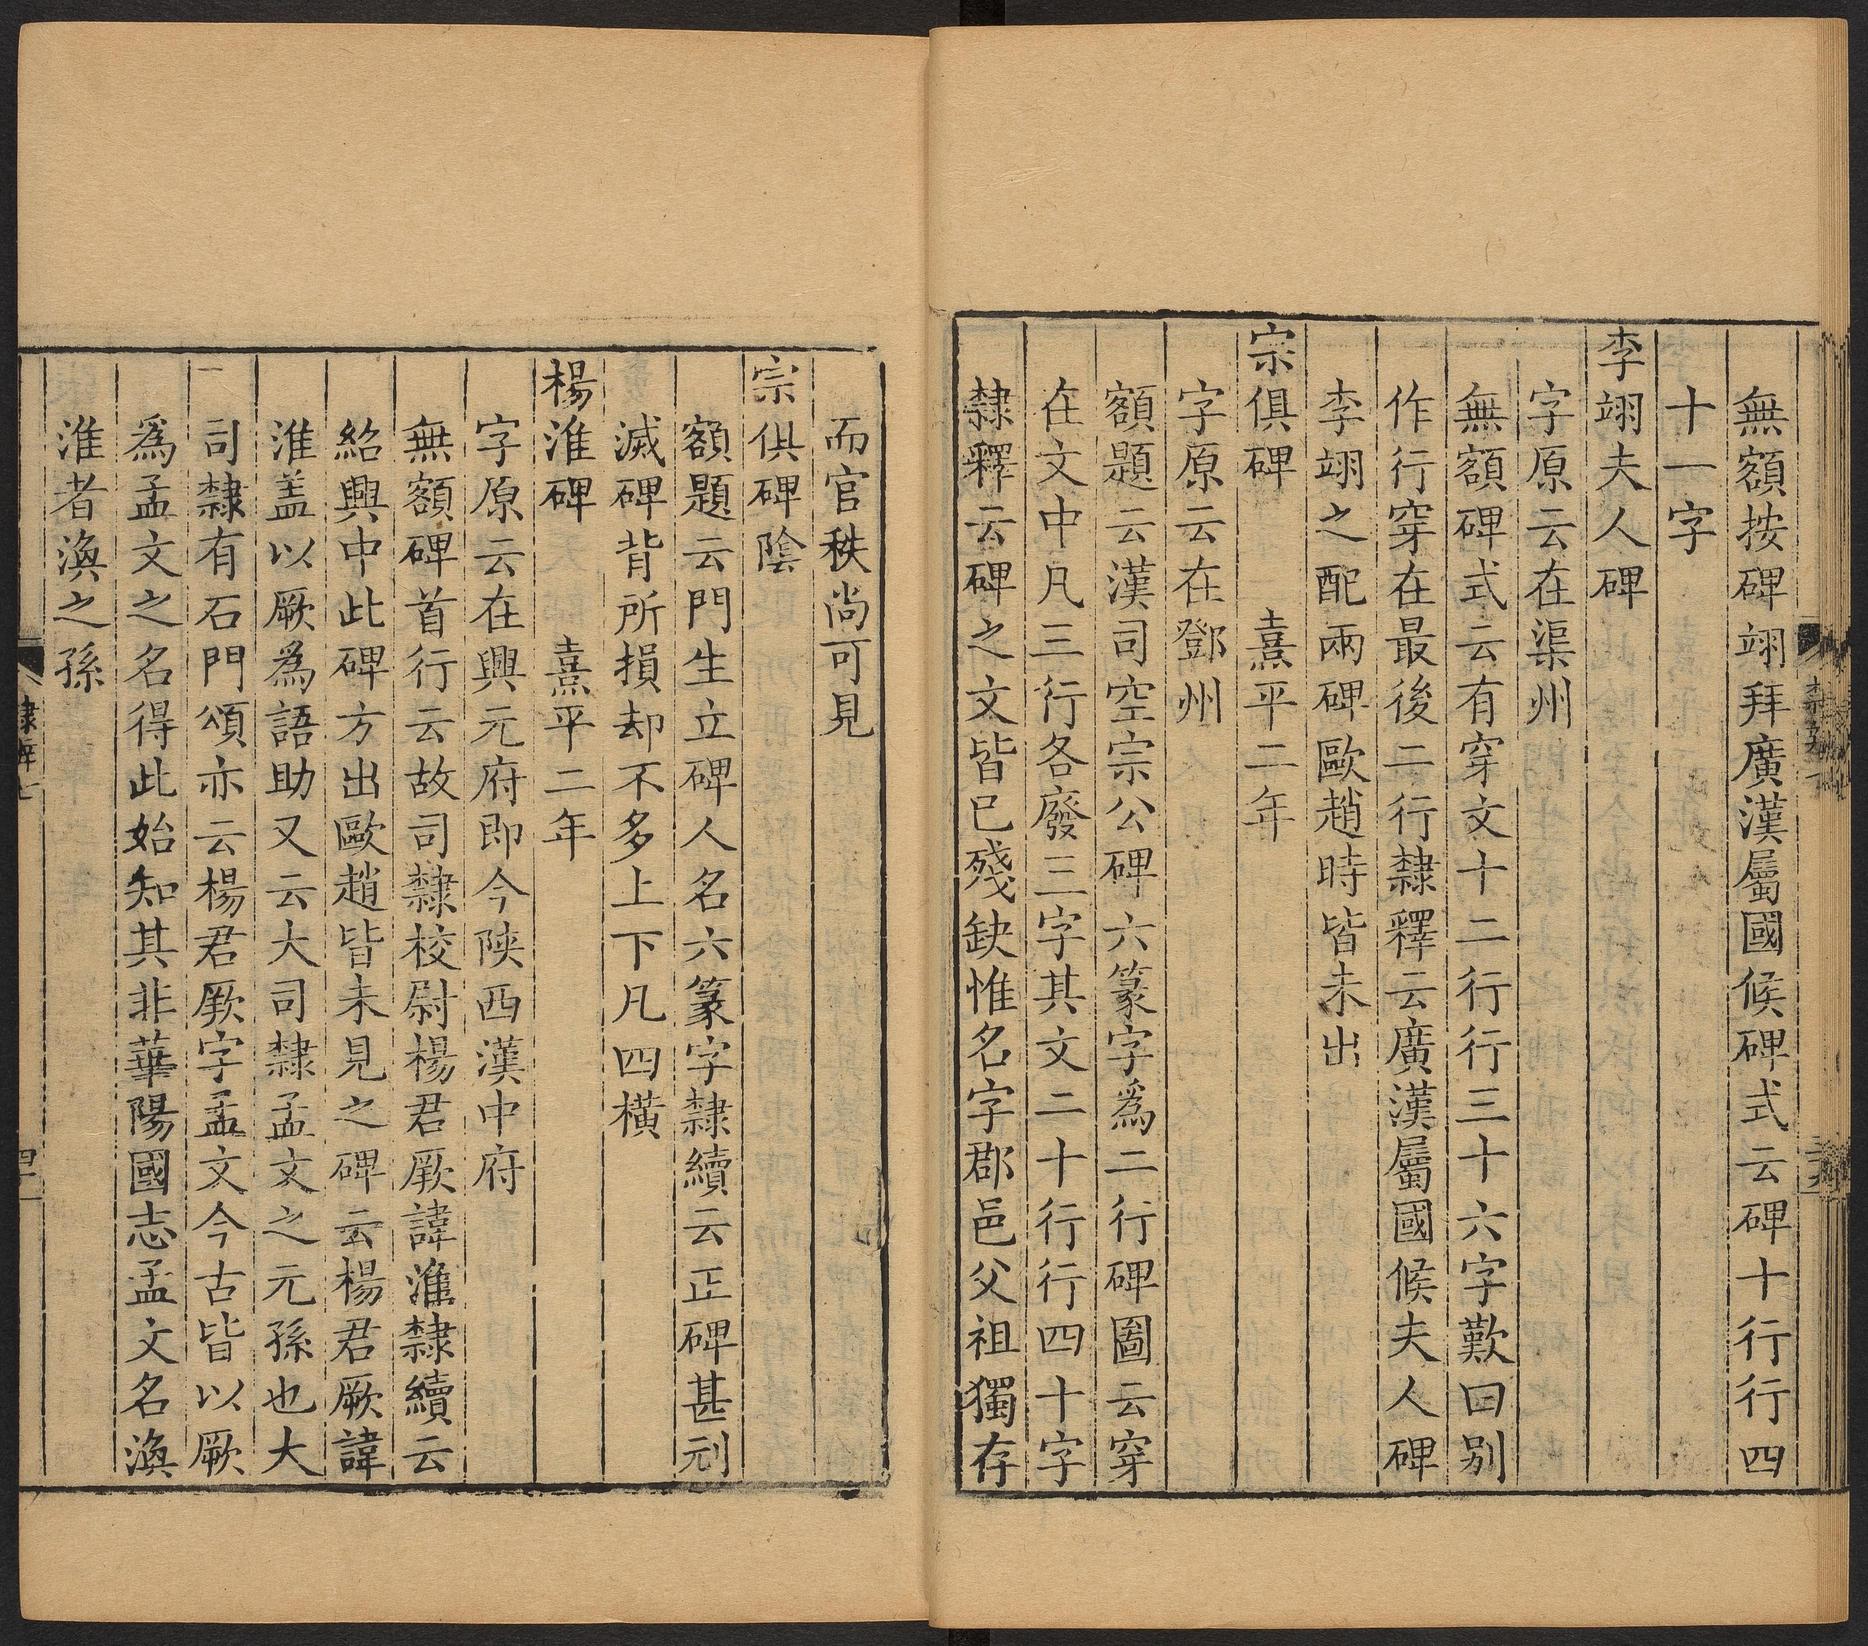 無額按碑翊拜廣漢屬國候碑式云碑十行行四
十一字
李翊夫人碑
字原云在渠州
無額碑式云有穿文十二行行三十六字歎曰別
作行穿在最後二行隸釋云廣漢屬國候夫人碑
李翊之配兩碑歐趙時皆未出
宗俱碑 熹平二年
字原云在鄧州
額題云漢司空宗公碑六篆字爲二行碑圖云穿
在文中凡三行各廢三字其文二十行行四十字
隸釋云碑之文皆已殘缺惟名字郡邑父祖獨存
而官秩尚可見
宗俱碑陰
額題云門生立碑人名六篆字隸續云正碑甚刓
滅碑背所損却不多上下凡四橫
楊淮碑 熹平二年
字原云在興元府即今陝西漢中府
無額碑首行云故司隸校尉楊君厥諱淮隸續云
紹興中此碑方出歐趙皆未見之碑云楊君厥諱
淮盖以厥爲語助又云大司隸孟文之元孫也大
司隸有石門頌亦云楊君厥字孟文今古皆以厥
爲孟文之名得此始知其非華陽國志孟文名渙
淮者渙之孫
隸辨七
四一